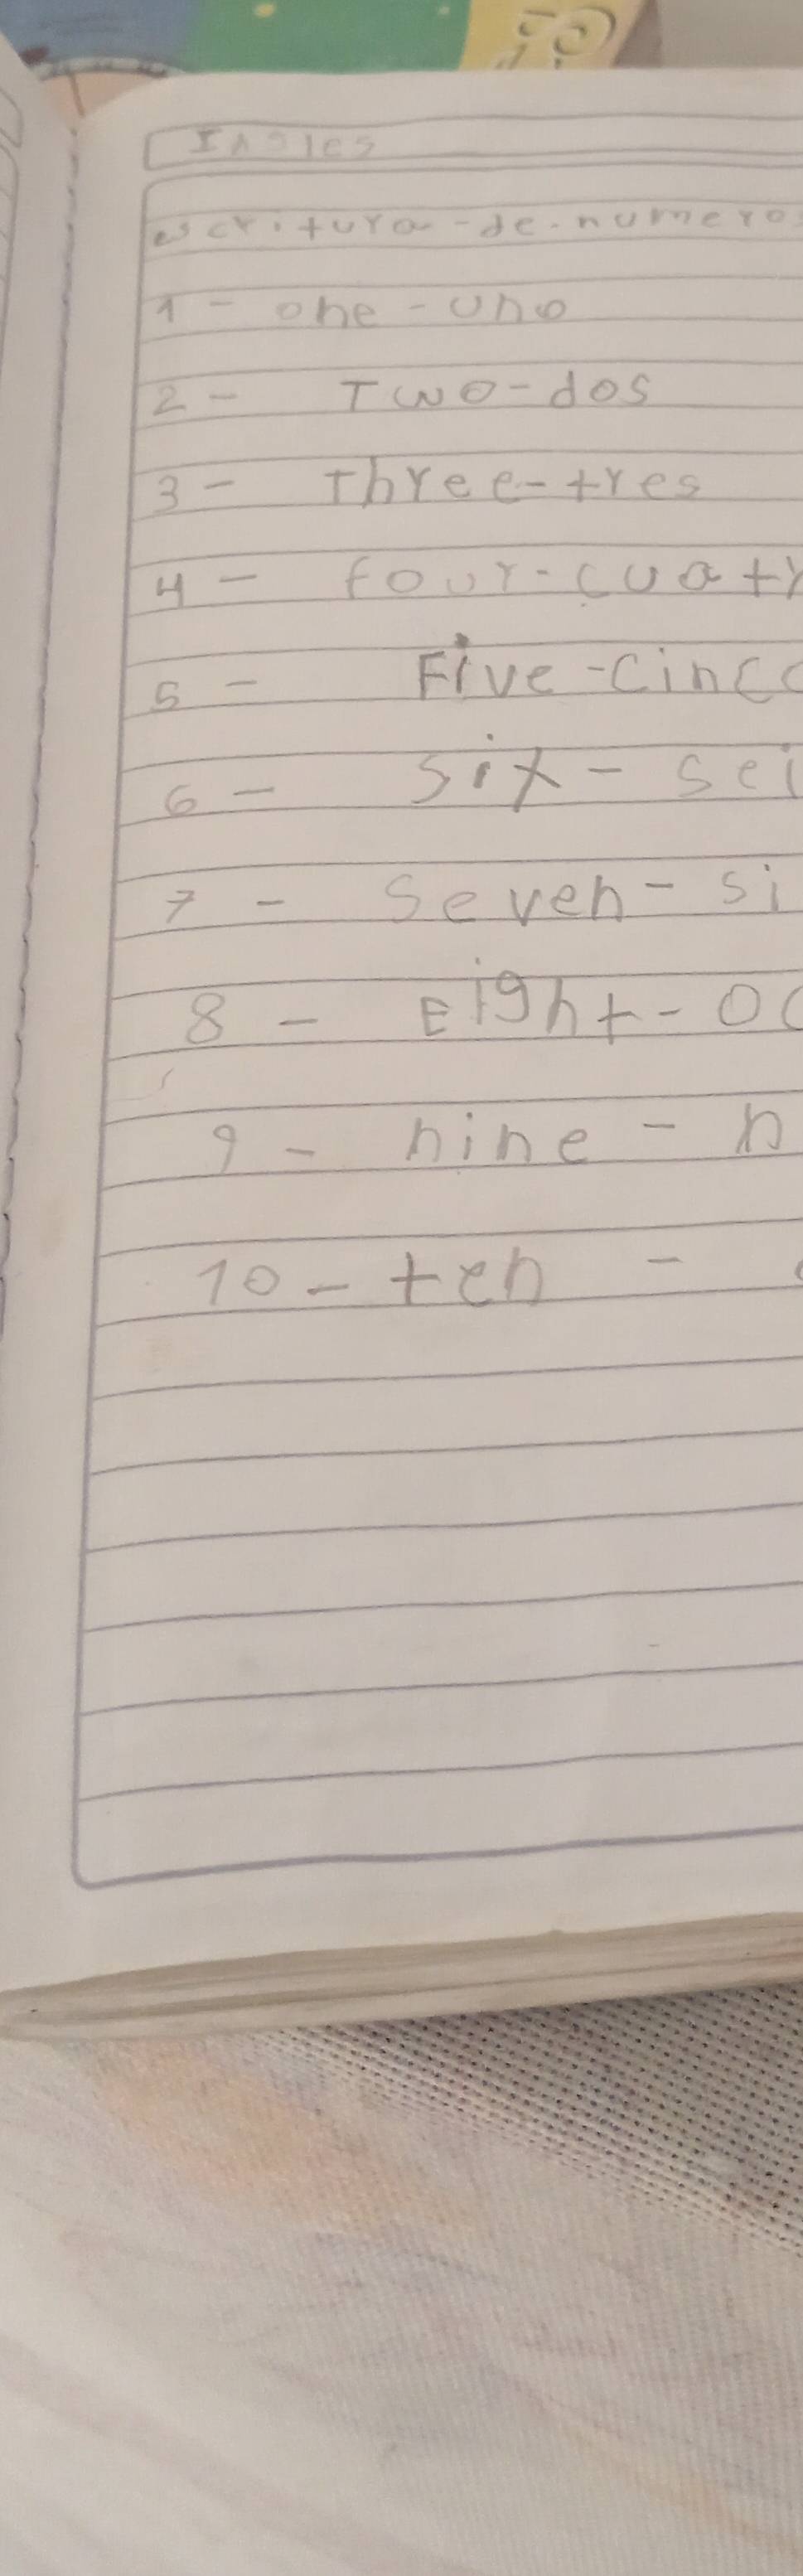 Ingles
escritura-de-numeros
1- one-uno
2- Two-dos
3- Three-tres
4- four-cuatr
5- Five-cinco
6- six-sei
7- seven-si
8- Eight-oc
9- nine-n
10-ten -